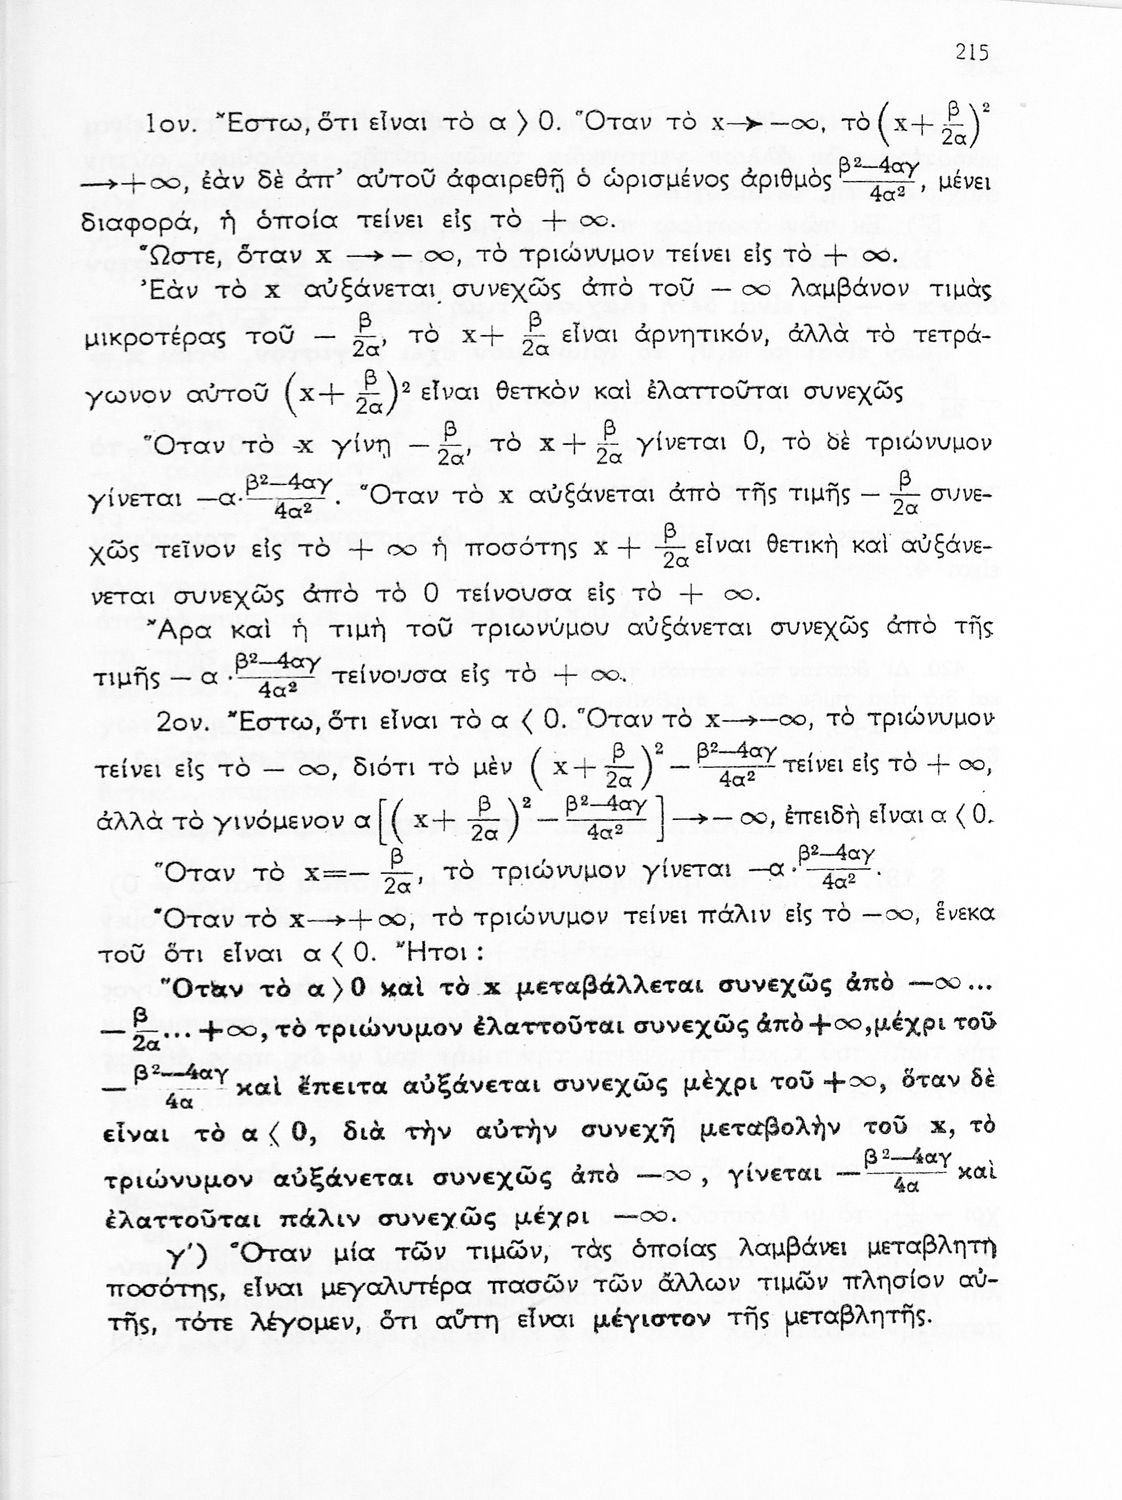 215
1ον. Ἔστω, ὅτι εἶναι τὸ α > 0. Ὅταν τὸ x→ −∞, τὸ (x+ β/2α)²
→+∞, ἐὰν δὲ ἀπ' αὐτοῦ ἀφαιρεθῇ ὁ ὡρισμένος ἀριθμὸς β²−4αγ/4α², μένει
διαφορά, ἡ ὁποία τείνει εἰς τὸ + ∞.
Ὥστε, ὅταν x → − ∞, τὸ τριώνυμον τείνει εἰς τὸ + ∞.
Ἐὰν τὸ x αὐξάνεται συνεχῶς ἀπὸ τοῦ − ∞ λαμβάνον τιμὰς
μικροτέρας τοῦ − β/2α, τὸ x+ β/2α εἶναι ἀρνητικόν, ἀλλὰ τὸ τετρά-
γωνον αὐτοῦ (x+ β/2α)² εἶναι θετκὸν καὶ ἐλαττοῦται συνεχῶς
Ὅταν τὸ -x γίνῃ − β/2α, τὸ x + β/2α γίνεται 0, τὸ δὲ τριώνυμον
γίνεται −α·β²−4αγ/4α². Ὅταν τὸ x αὐξάνεται ἀπὸ τῆς τιμῆς − β/2α συνε-
χῶς τεῖνον εἰς τὸ + ∞ ἡ ποσότης x + β/2α εἶναι θετικὴ καὶ αὐξάνε-
νεται συνεχῶς ἀπὸ τὸ 0 τείνουσα εἰς τὸ + ∞.
Ἄρα καὶ ἡ τιμὴ τοῦ τριωνύμου αὐξάνεται συνεχῶς ἀπὸ τῆς
τιμῆς − α · β²−4αγ/4α² τείνουσα εἰς τὸ + ∞.
2ον. Ἔστω, ὅτι εἶναι τὸ α < 0. Ὅταν τὸ x→−∞, τὸ τριώνυμον
τείνει εἰς τὸ − ∞, διότι τὸ μὲν ( x+ β/2α )² − β²−4αγ/4α² τείνει εἰς τὸ + ∞,
ἀλλὰ τὸ γινόμενον α[( x+ β/2α )² − β²−4αγ/4α² ] →− ∞, ἐπειδὴ εἶναι α < 0.
Ὅταν τὸ x=− β/2α, τὸ τριώνυμον γίνεται −α · β²−4αγ/4α².
Ὅταν τὸ x→+∞, τὸ τριώνυμον τείνει πάλιν εἰς τὸ −∞, ἕνεκα
τοῦ ὅτι εἶναι α < 0. Ἤτοι :
Ὅταν τὸ α > 0 καὶ τὸ x μεταβάλλεται συνεχῶς ἀπὸ −∞...
− β/2α... +∞, τὸ τριώνυμον ἐλαττοῦται συνεχῶς ἀπὸ +∞, μέχρι τοῦ
− β²−4αγ/4α καὶ ἔπειτα αὐξάνεται συνεχῶς μὲχρι τοῦ +∞, ὅταν δὲ
εἶναι τὸ α < 0, διὰ τὴν αὐτὴν συνεχῆ μεταβολὴν τοῦ x, τὸ
τριώνυμον αὐξάνεται συνεχῶς ἀπὸ −∞ , γίνεται − β²−4αγ/4α καὶ
ἐλαττοῦται πάλιν συνεχῶς μέχρι −∞.
γ′) Ὅταν μία τῶν τιμῶν, τὰς ὁποίας λαμβάνει μεταβλητὴ
ποσότης, εἶναι μεγαλυτέρα πασῶν τῶν ἄλλων τιμῶν πλησίον αὐ-
τῆς, τότε λέγομεν, ὅτι αὕτη εἶναι μέγιστον τῆς μεταβλητῆς.